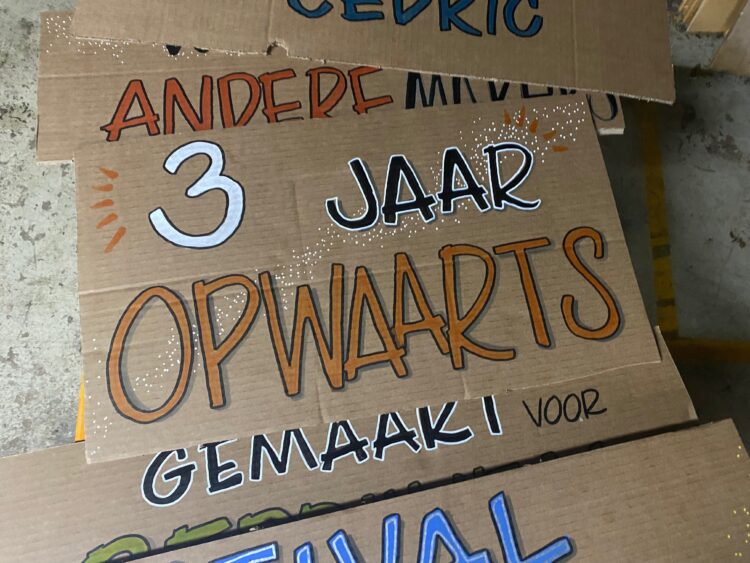 CEDRIC
ANDERE
3 JAAR
OPWAARTS
GEMAAKT VOOR